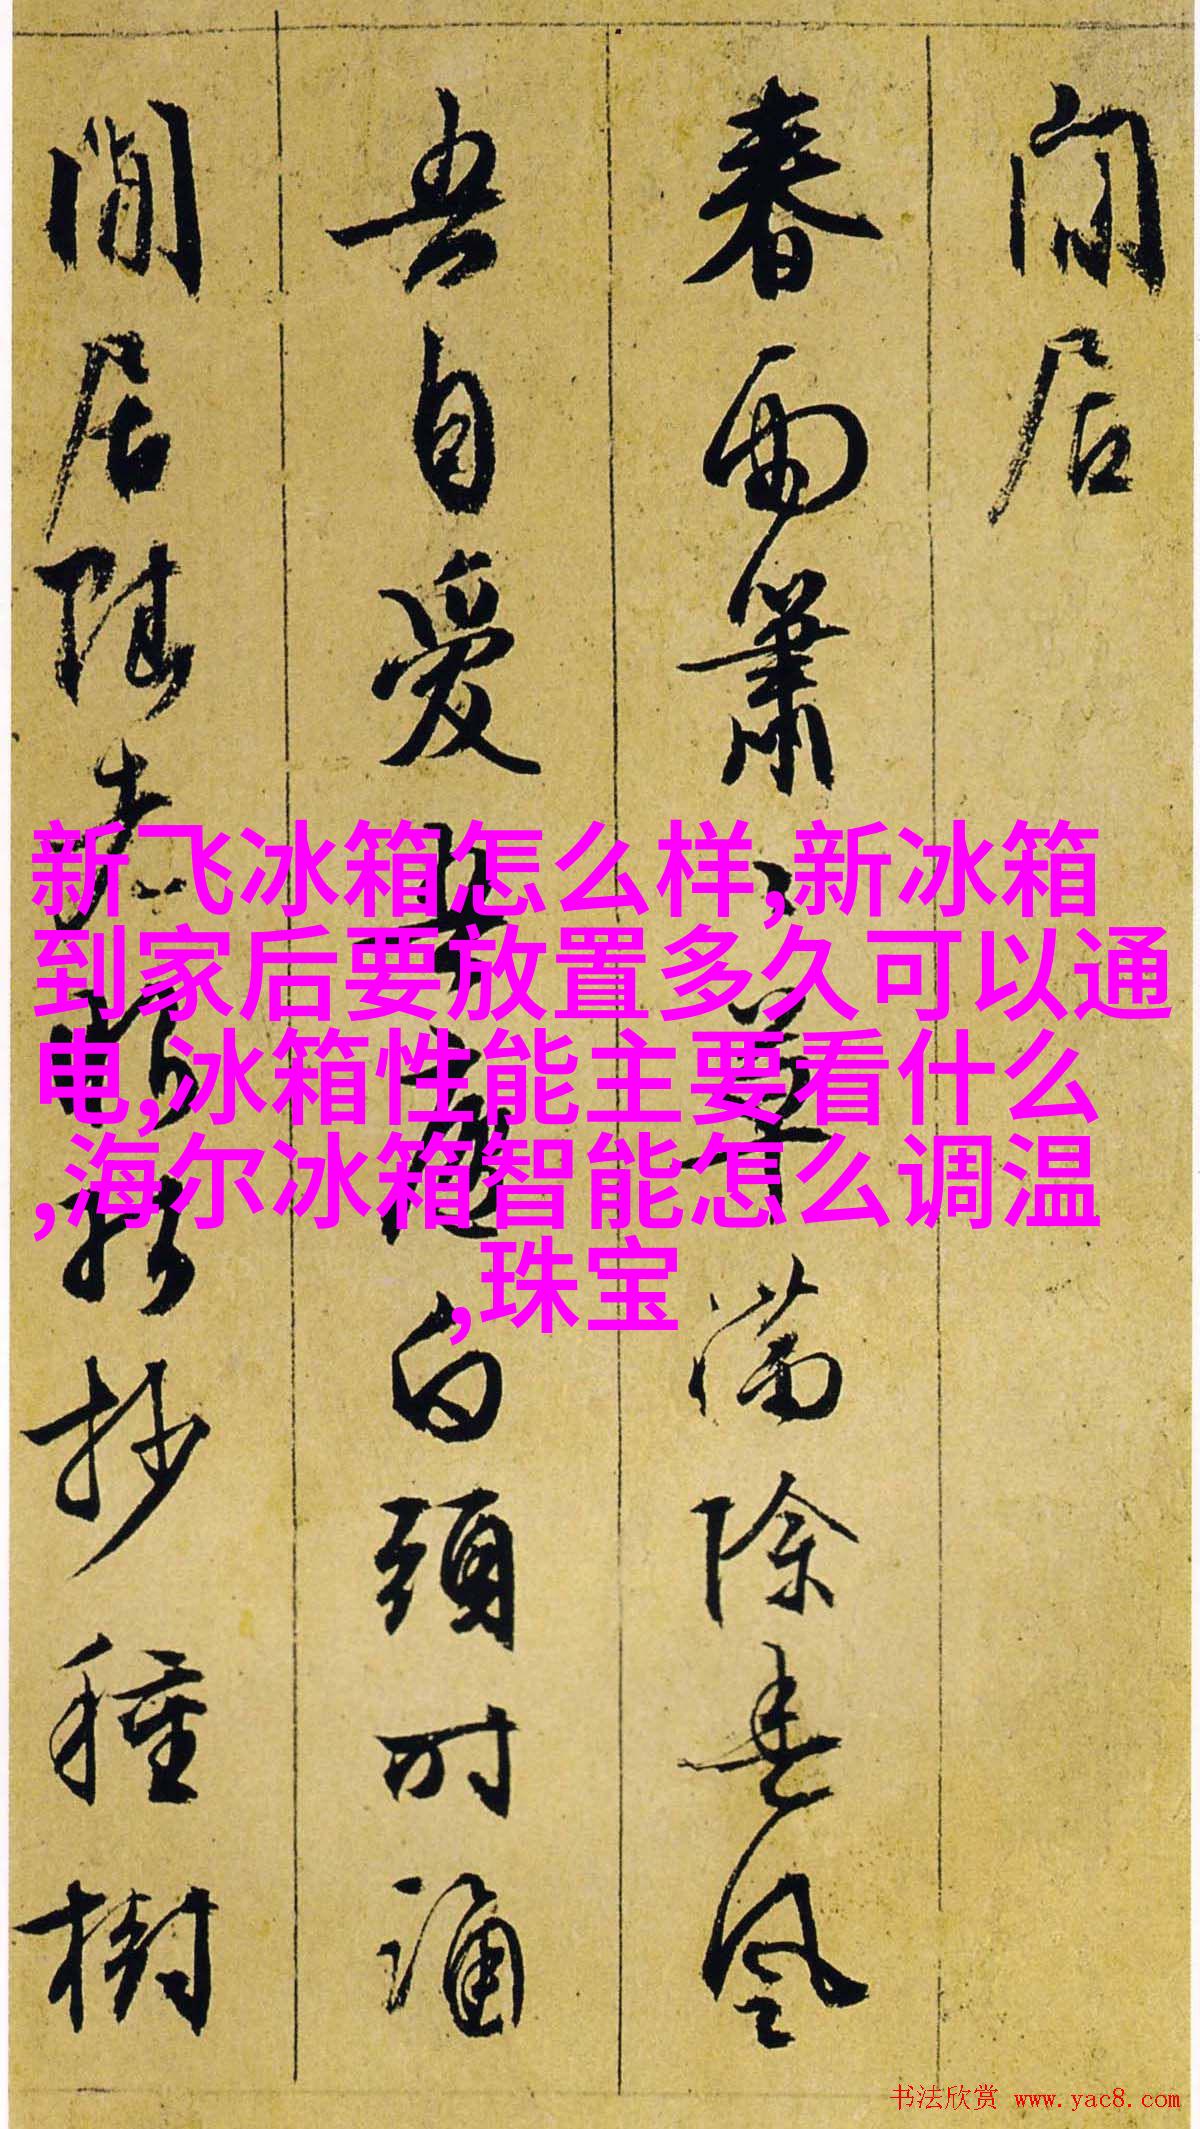 闲居
春雨萧
草满除春风
吾自爱
白头时诵
闲居
抄种树
新飞冰箱怎么样,新冰箱
到家后要放置多久可以通
电,冰箱性能主要看什么
,海尔冰箱智能怎么调温
,珠宝
书法欣赏 www.yac8.com